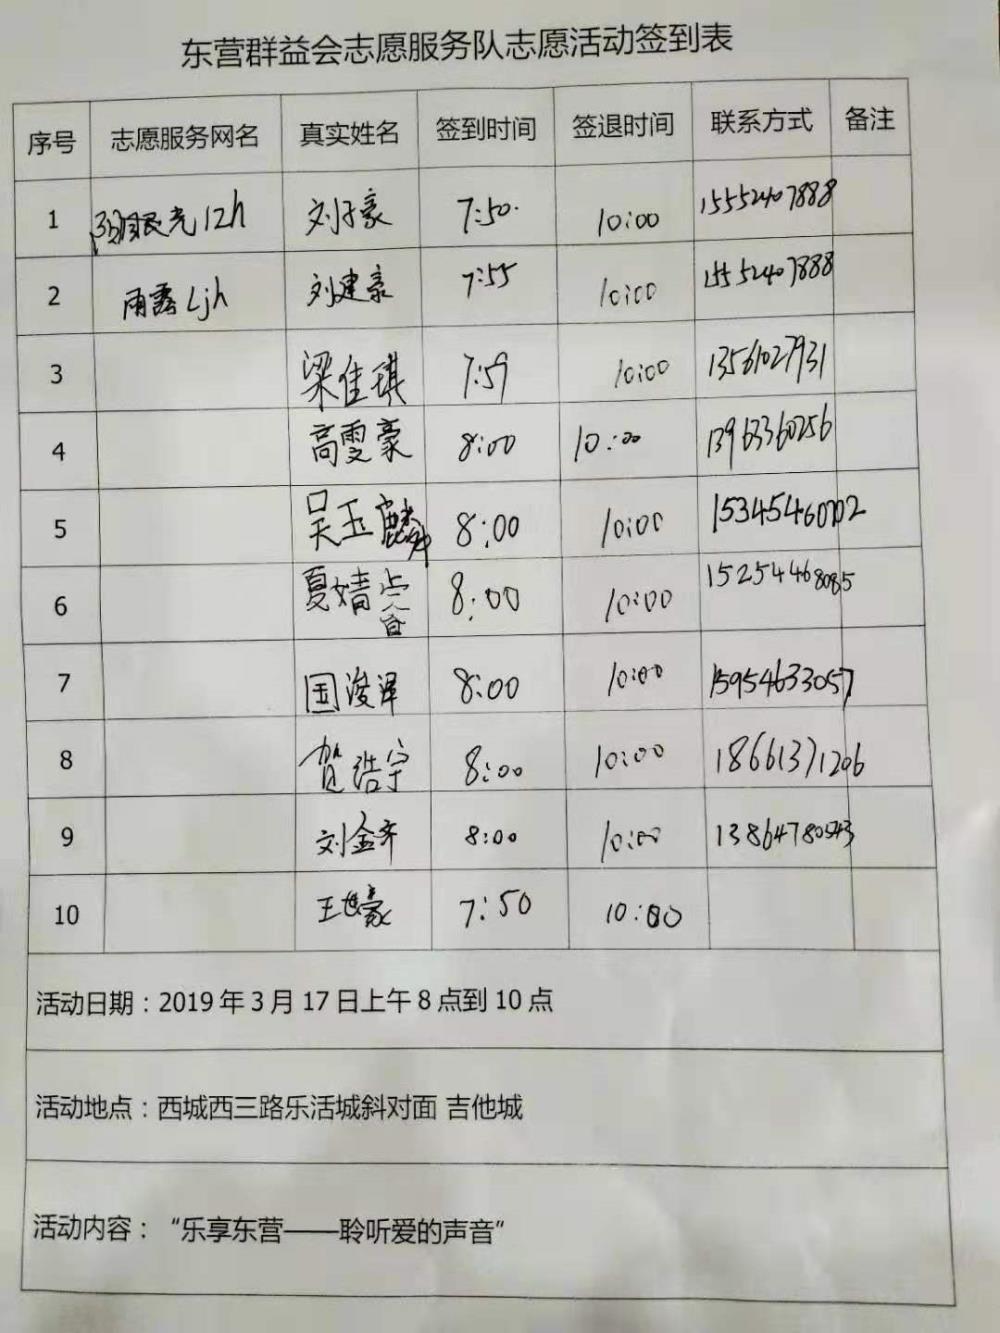 东营群益会志愿服务队志愿活动签到表
序号 志愿服务网名 真实姓名 签到时间 签退时间 联系方式 备注
1 12h 刘子豪 7:50 10:00 15552407888
2 雨露Ljh 刘建豪 7:55 10:00 15552407888
3 梁佳琪 7:59 10:00 13561027931
4 高雯豪 8:00 10:00 13963360256
5 吴玉麟 8:00 10:00 15345460702
6 夏婧 8:00 10:00 15254468085
7 国浚泽 8:00 10:00 15954633057
8 贺浩宇 8:00 10:00 18661371206
9 刘金齐 8:00 10:00
10 王世豪 7:50 10:00
活动日期：2019年3月17日上午8点到10点
活动地点：西城西三路乐活城斜对面 吉他城
活动内容：“乐享东营——聆听爱的声音”